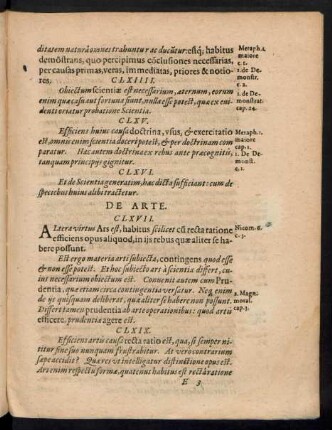 ditatem naturâ omnes trahuntur ac ducūtur: estq́; habitus
demōstrans, quo percipimus cōclusiones necessarias,
per causas primas, veras, immediatas, priores & notio-
res.
CLXIIII.
Obiectum scientiæ est necessarium, æternum, eorum
enim quæ casu aut fortuna fiunt, nulla esse potest, quæ ex eui-
denti oriatur probatione Scientia.
CLXV.
Efficiens huius causa doctrina, vsus, & exercitatio
est, omnis enim scientia doceri potest, & per doctrinam com-
paratur. Hæc autem doctrina ex rebus ante præcognitis,
tanquam principijs gignitur.
CLXVI.
Et de Scientia generatim, hac dicta sufficiant: cum de
speciebus huius alibi tractetur.
DE ARTE.
CLXVII.
Altera virtus Ars est, habitus scilicet cū recta ratione
efficiens opus aliquod, in ijs rebus quæ aliter se ha-
bere possunt.
Est ergo materia arti subiecta, contingens quod esse
& non esse potest. Et hoc subiecto ars à scientia differt, cu-
ius necessarium obiectum est. Conuenit autem cum Pru-
dentia, quæ etiam circa contingentia versatur. Neg, enim
de ijs quisquam deliberat, quæ aliter se habere non possunt.
Differt tamen prudentia ab arte operationibus: quod artis
efficere, prudentiæ agere est.
CLXIX.
Efficiens artis causa recta ratio est, qua, si semper ni-
titur fine suo nunquam frustrabitur. At vero contrarium
sæpe accidit? Quæres vt intelligatur distinctione opus est.
Ars enim respectu formæ, quatenus habitus est rectâ ratione
E 3
Metaph. 2.
maiore
c. 1.
1. de De-
monstr.
c. 2.
1. de De-
monstrat.
cap. 24.
Metaph. 1.
maiore
cap. 1.
1. De De-
monst.
c. 1.
Nicom. 6.
c. 3.
1. Magn.
moral.
cap. 1.